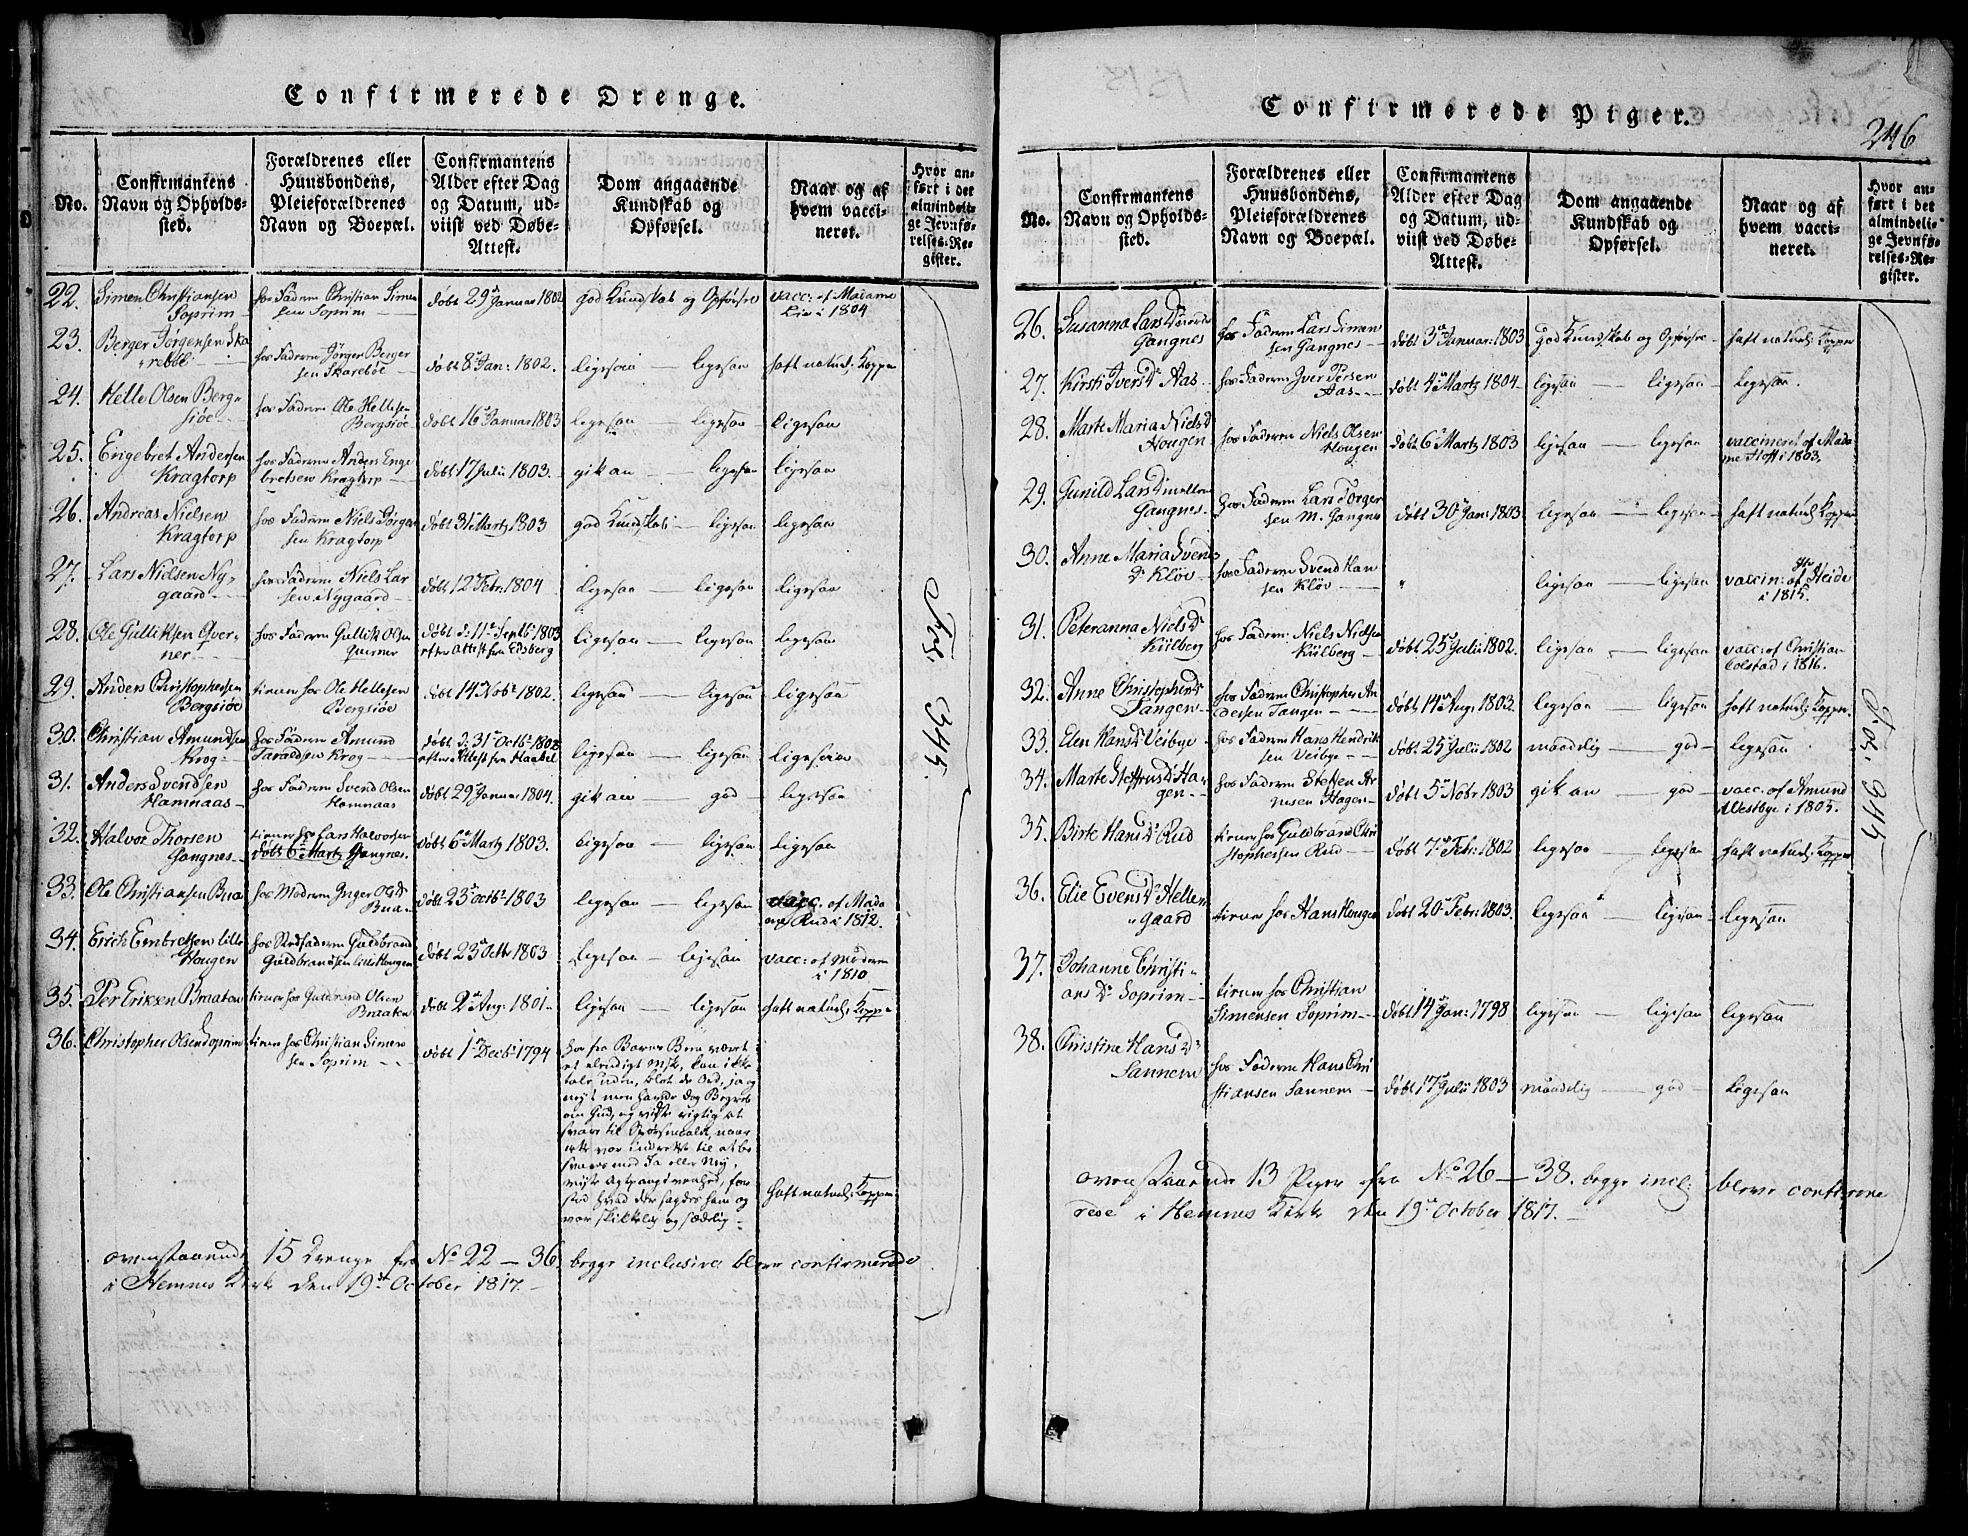 Confirmerede Drenge.
No.
Confirmantens Navn og Opholds-
sted.
Forældrenes eller
Huusbondens,
Pleieforældrenes
Navn og Boepæl.
Confirmantens
Alder efter Dag
og Datum, ud-
viist ved Døbe-
Attest.
Dom angaaende
Kundskab og
Opførsel.
Naar og af
hvem vacci-
neret.
Hvor an-
ført i det
almindeli-
ge Jevnfø-
relses-Re-
gister.
22. Simen Christiansen
Soprim
hos Faderen Christian Simen
sen Soprim
døbt 29de Januar 1802
god Kundskab og Opførsel
vacc: af Madame
Lie i 1804
23. Berger Jørgensen Ska
rebøe
hos Faderen Jørgen Berger
sen Skarebøe
døbt 8de Jan: 1802.
ligesaa — ligesaa
haft naturl: Kopper
24. Helle Olsen Berg-
siøe
hos Faderen Ole Hellesen
Bergsiøe
døbt 16de Januar 1803
ligesaa — ligesaa
ligesaa
25. Engebret Andersen
Kragtorp
hos Faderen Anders Enge
bretsen Kragtorp
døbt 17 Julii 1803.
gik an — ligesaa
ligesaa
26. Andreas Nielsen
Kragtorp
hos Faderen Niels Jørgen
sen Kragtorp
døbt 31 Martz 1803
god Kundskab — ligesaa
ligesaa
27. Lars Nielsen Ny-
gaard
hos Faderen Niels Lar
sen Nygaard
døbt 12 Febr: 1804
ligesaa — ligesaa
ligesaa
28. Ole Gulliksen Qver-
ner
hos Faderen Gullik Olsen
Querner
døbt d: 11te Septb 1803
efter Attest fra Edsberg
ligesaa — ligesaa
ligesaa
29. Anders Christophersen
Bergsiøe
tiener hos Ole Hellesen
Bergsiøe
døbt 14 Nobr 1802.
ligesaa — ligesaa
ligesaa
30. Christian Amundsen
Krog
hos Faderen Amund
Taraldsen Krog
døbt d: 31te Octb: 1802
efter Attest fra Haabøl
ligesaa — ligesaa
ligesaa
31. Anders Svendsen
Hamnaas
hos Faderen Svend Olsen
Hamnaas
døbt 29 Januar 1804.
gik an — god
ligesaa
32. Halvor Thorsen
Gangnes
tiener hos Lars Halvorsen
døbt 6te Martz Gangnes.
døbt 6te Martz 1803.
ligesaa — ligesaa
ligesaa
33. Ole Christiansen Braa
hos Moderen Inger Olsd
Braa
døbt 23de Octbr 1803
ligesaa — ligesaa
vacc. af Mada
me Rud i 1812.
34. Erich Embretsen lille
Hougen
hos Stedfaderen Guldbrand
Guldbrandsen lille Hougen
døbt 23de Octb 1803
ligesaa — ligesaa
vacc: af Moderen
i 1810
35. Per Eriksen Braaten
tiener hos Guldbrand Olsen
Braaten
døbt 2de Aug: 1801
ligesaa — ligesaa
haft naturl: Kopper
36. Christopher Olsen Soprim
tiener hos Christian Simen
sen Soprim
døbt 1te Decbr 1794
har fra Barns Been været
et elendigt Msk, kan ikke
tale, uden, blot de Ord, ja og
ney; men havde dog Begreb
om Gud, og vidste rigtig at
svare til Spørsmaalet, naar
det var indrettet til at be
svares med Ja eller Ney,
viste Agtpaagivenhed, for
stod hvad der sagdes ham og
var skikkelig og sædelig
haft naturl: Kopper
Fol. 345.
ovenstaaende 15 Drenge fra No 22 — 36 begge inclusive bleve confirmerede
i Hemnes Kirke den 19de October 1817.
Confirmerede Piger.
246
No.
Confirmantens
Navn og Opholds-
sted.
Forældrenes eller
Huusbondens,
Pleieforældrenes
Navn og Boepæl.
Confirmantens
Alder efter Dag
og Datum, ud-
viist ved Døbe-
Attest.
Dom angaaende
Kundskab og
Opførsel.
Naar og af
hvem vacci-
neret.
Hvor an-
ført i det
almindeli-
ge Jevnfø-
relses-Re-
gister.
26. Susanna Lars D
Gangnes
hos Faderen Lars Simen
sen Gangnes
døbt 3de Januar: 1803
god Kundskab og Opførsel
haft naturl: Kopper
27. Kirsti Ivers D Aas
hos Faderen Iver Persen
Aas
døbt 4de Martz 1804
ligesaa — ligesaa
ligesaa.
28. Marte Maria Niels D
Hougen
hos Faderen Niels Olsen
Hougen
døbt 6te Martz 1803
ligesaa — ligesaa
vaccineret af Mada
me Hoff i 1803.
29. Gunild Lars D mellem
Gangnes
hos Faderen Lars Torger
sen M. Gangnes
døbt 30te Jan: 1803
ligesaa — ligesaa
haft naturl: Kopper
30. Anne Maria Svends
D Kløv
hos Faderen Svend Han
sen Kløv
"
ligesaa — ligesaa
vaccin: af Hr Heide
i 1815.
31. Peteranna Niels D
Külberg
hos Faderen Niels Nielsen
Külberg
døbt 25de Julii 1802.
ligesaa — ligesaa
vacc: af Christian
Colstad i 1816.
32. Anne Christophers D
Tangen
hos Faderen Christopher An
dersen Tangen
døbt 14de Aug: 1803.
ligesaa — ligesaa
haft naturl: Kopper.
33. Elen Hans D Veibye
hos Faderen Hans Hendrik
sen Veibye
døbt 25de Julii 1802
maadelig — god
ligesaa
34. Marte Steffens D Ha-
gen
hos Faderen Steffen Ar
nesen Hagen
døbt 5te Nobr 1803
gik an — god
vacc. af Amund
Westbye i 1805.
35. Birte Hans D Rud
tiener hos Guldbrand Chri
stophersen Rud
døbt 7de Febr: 1802
ligesaa — ligesaa
haft naturl: Kopper
36. Elie Evens D Hellen
gaard
tiener hos Hans Hougen
døbt 20de Febr: 1803.
ligesaa — ligesaa
ligesaa
37. Johanne Christi-
ans D Soprim
tiener hos Christian
Simensen Soprim
døbt 14de Jan: 1798
ligesaa — ligesaa
ligesaa
38. Christine Hans D
Sannem
hos Faderen Hans Chri
stiansen Sannem
døbt 17de Julii 1803
maadelig — god
ligesaa
Fol. 345
ovenstaaende 13 Piger fra No 26 — 38. begge incl: bleve confirme
rede i Hemnes Kirke den 19de October 1817.